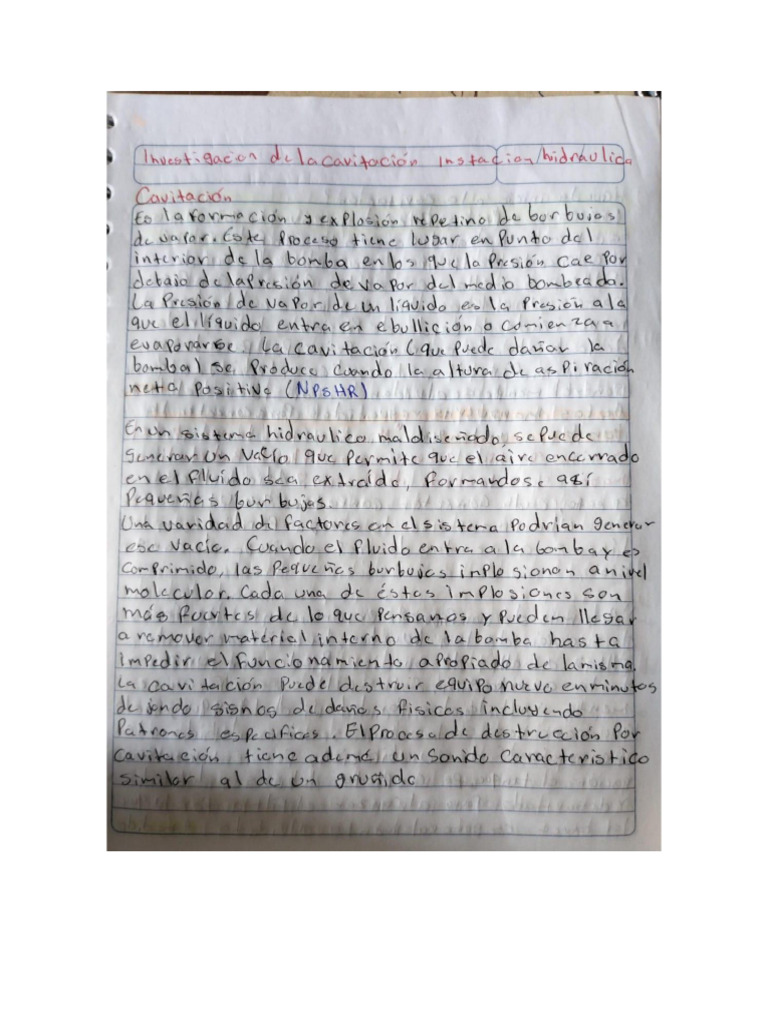 Investigacion de la cavitación instacion/hidráulica
Cavitación
Es la formación y explosión repetino de burbujas
de vapor. Este proceso tiene lugar en punto del
interior de la bomba en los que la presión cae por
debajo de la presión de vapor del medio bombeada.
La presión de vapor de un líquido es la presión a la
que el líquido entra en ebullición o comienza a
evaporarse. La cavitación (que puede dañar la
bomba) se produce cuando la altura de aspiración
neta positive (NPSHR)
En un sistema hidraulico mal diseñado, se puede
generar un vacío que permite que el aire encerrado
en el fluido sea extraído, formandose así
pequeñas burbujas.
Una varidad de factores en el sistema podrían generar
ese vacio. Cuando el fluido entra a la bomba y es
comprimido, las pequeñas burbujas implosionan a nivel
molecular. Cada una de éstas implosiones son
más fuertes de lo que pensamos y pueden llegar
a remover material interno de la bomba hasta
impedir el funcionamiento apropiado de la misma.
La cavitación puede destruir equipo nuevo en minutos
dejando signos de daños fisicos incluyendo
patrones especificos. El proceso de destrucción por
cavitación tiene además un sonido caracteristico
similar al de un gruñido